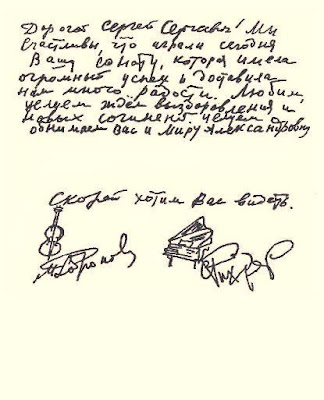 Дорогой Сергей Сергеевич! Мы
счастливы, что играли сегодня
Вашу сонату, которая имела
огромный успех и доставила
нам много радости. Любим,
целуем ждём выздоровления и
новых сочинений целуем
обнимаем Вас и Миру Александровну
Скорей хотим Вас видеть.
Рихтер